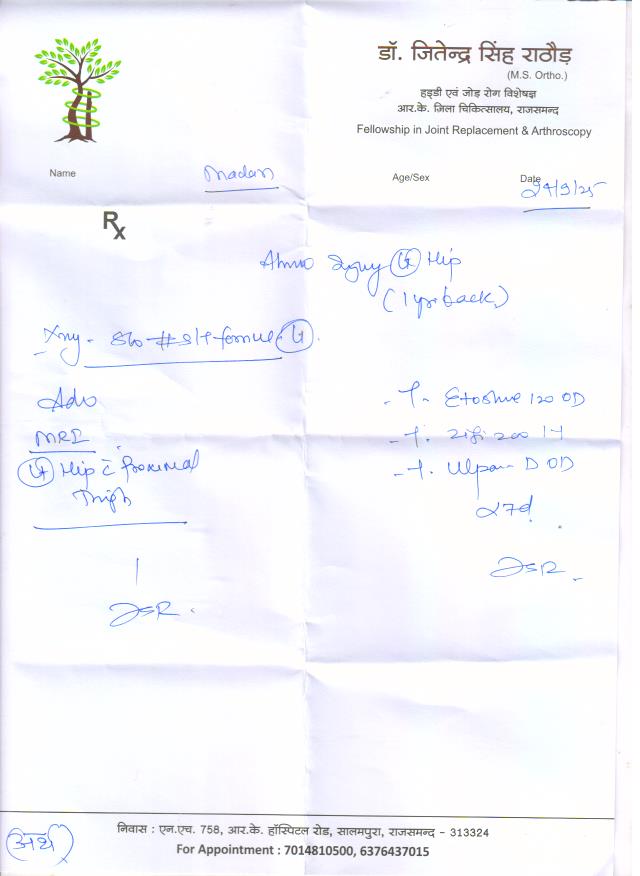 डॉ. जितेन्द्र सिंह राठौड़
(M.S. Ortho.)
हड्डी एवं जोड़ रोग विशेषज्ञ
आर.के. जिला चिकित्सालय, राजसमन्द
Fellowship in Joint Replacement & Arthroscopy
Name Madan Age/Sex Date 24/9/25
Rx
Hip
(1 yr back)
Xray -
Adv
MRI
Hip c̄ proximal
Thigh
- T. 120 OD
- T. 200
- T. D OD
x 7d
JSR
JSR
निवास : एन.एच. 758, आर.के. हॉस्पिटल रोड, सालमपुरा, राजसमन्द - 313324
For Appointment : 7014810500, 6376437015
(अर्थ)